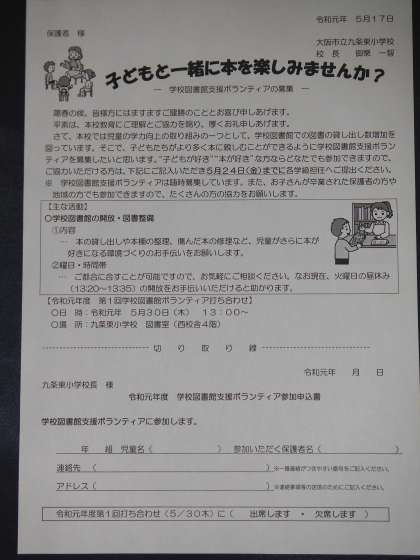 令和元年 5月17日
保護者 様
大阪市立九条東小学校
校 長 御栗 一智
子どもと一緒に本を楽しみませんか？
― 学校図書館支援ボランティアの募集 ―
陽春の候、皆様方にはますますご健勝のこととお喜び申しあげます。
平素は、本校教育にご理解とご協力を賜り、厚くお礼申しあげます。
さて、本校では児童の学力向上の取り組みの一つとして、学校図書館での図書の貸し出し数増加を
図っています。そこで、子どもたちがより多く本に親しむことができるように学校図書館支援ボラン
ティアを募集したいと思います。"子どもが好き""本が好き"な方ならどなたでも参加できますので、
ご協力いただける方は、下記にご記入いただき5月24日(金)までに各学級担任へご提出ください。
※ 学校図書館支援ボランティアは随時募集しています。また、お子さんが卒業された保護者の方や
地域の方でも参加できますので、たくさんの方の協力をお願いします。
【主な活動】
○学校図書館の開放・図書整備
①内容
… 本の貸し出しや本棚の整理、傷んだ本の修理など、児童がさらに本が
好きになる環境づくりのお手伝いをお願いします。
②曜日・時間帯
… ご都合に合すことが可能ですので、お気軽にご相談ください。なお現在、火曜日の昼休み
(13:20～13:35)の開放をお手伝いいただけると助かります。
【令和元年度 第1回学校図書館ボランティア打ち合わせ】
○日 時：令和元年 5月30日（木） 13：00～
○場 所：九条東小学校 図書室（西校舎4階）
切 り 取 り 線
令和元年 月 日
九条東小学校長 様
令和元年度 学校図書館支援ボランティア参加申込書
学校図書館支援ボランティアに参加します。
年 組 児童名（ ） 参加いただく保護者名（ ）
連絡先 （ ）※一番連絡がつきやすい番号をご記入ください。
アドレス（ ）※連絡事項等の送信のためにご記入ください。
令和元年度第1回打ち合わせ（5／30木）に（ 出席します ・ 欠席します ）